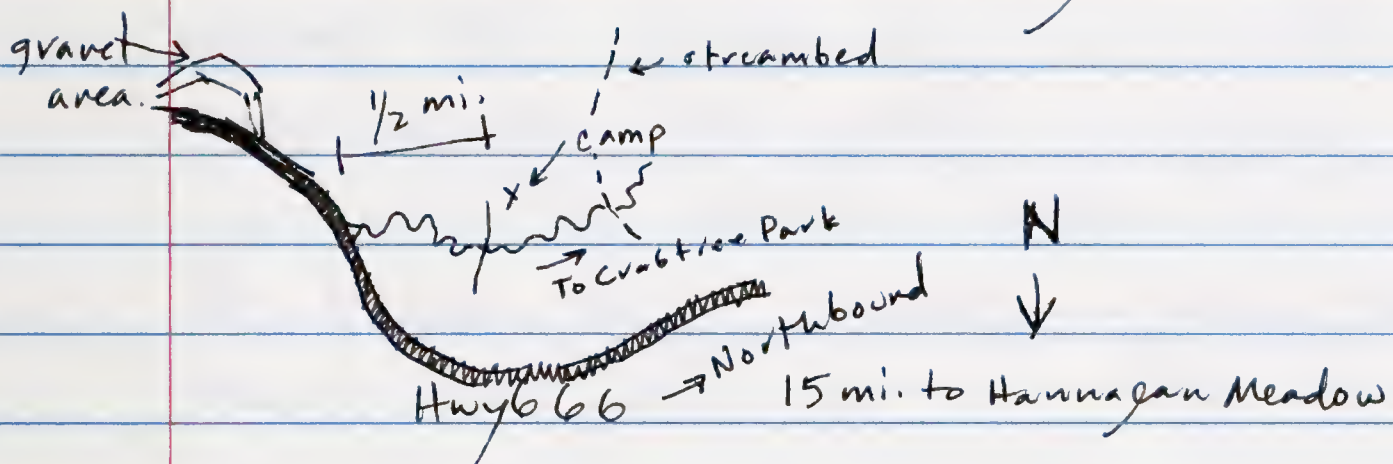 gravel
area.
1/2 mi.
streambed
camp
x
To Crabtree Park
N
Hwy 666
Northbound
15 mi. to Hannagan Meadow